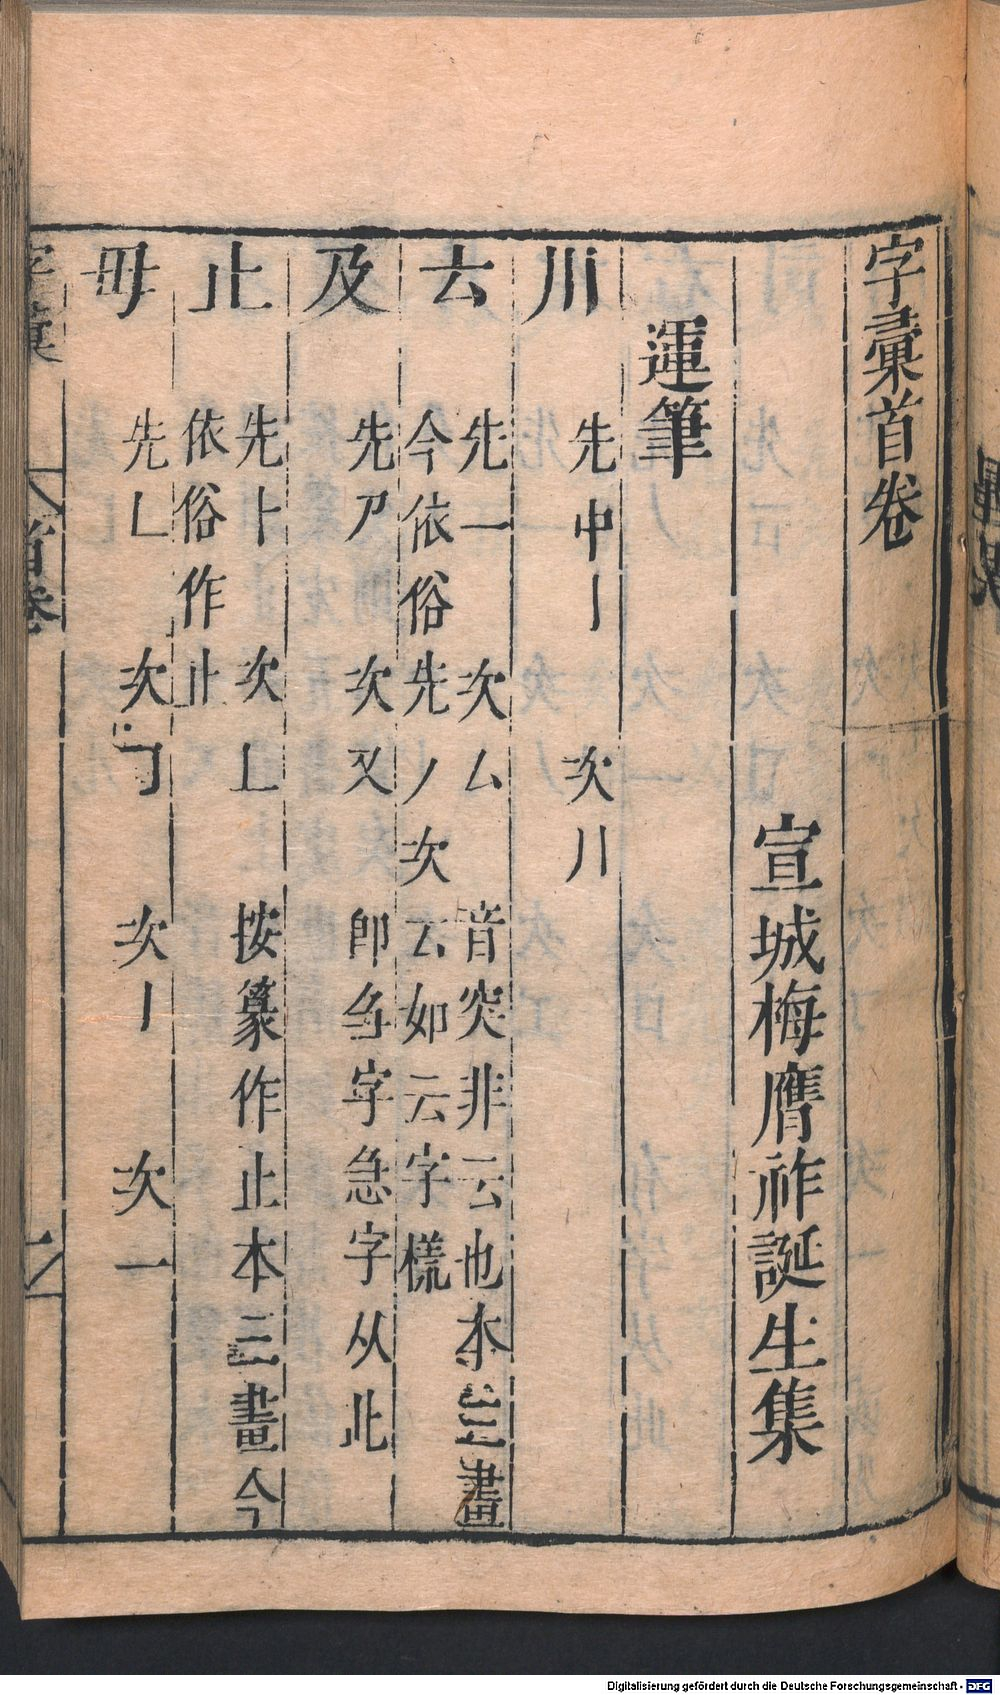 字彙首卷
宣城梅膺祚誕生集
運筆
川 先中丨 次八
𠫓 先一 次厶 音突非云也本三畫
今依俗先丿次𠫓如云字樣
及 先𠂆 次又 卽𢎨字急字从此
止 先⺊ 次𠃊 按篆作止本三畫今
依俗作止
毋 先𠃊 次𠃌 次丨 次一
字彙
首卷
一
Digitalisierung gefördert durch die Deutsche Forschungsgemeinschaft - DFG